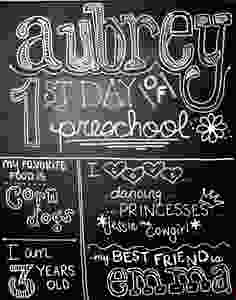 aubrey
1ST DAY OF
preschool
my FAVORITE
FOOD is
Corn
Dogs
I am
3 YEARS
OLD
I
dancing
PRINCESSES
Jessie the
Cowgirl
my BEST FRIEND is
emma